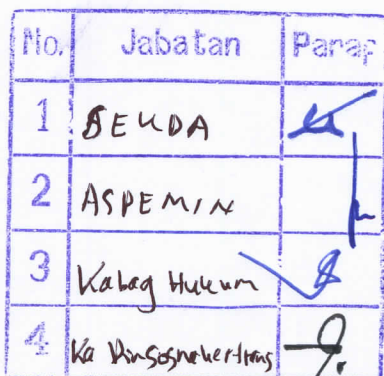 No. Jabatan Paraf
1 SEKDA
2 ASPEMIN
3 Kabag Hukum
4 Ka Dinsosnakertrans